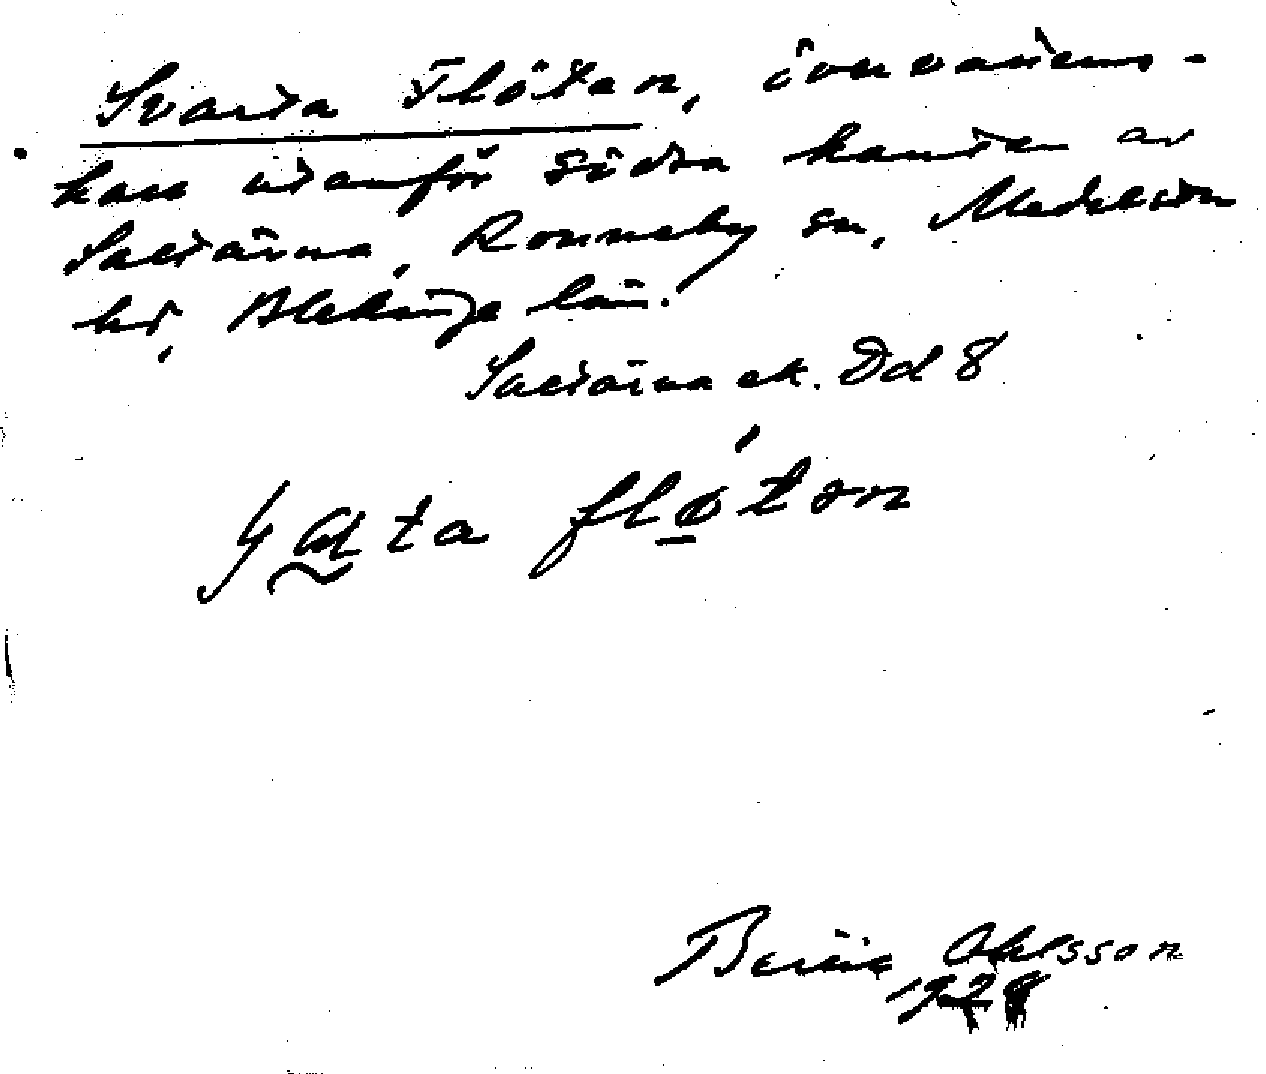 Svarta Flöten, övervattens-
kase utanför södra kanten av
Saltärna, Ronneby sn, Medelsta
hd, Blekinge län.
Saltärna ek. Dd 8
fløtən
Bertil Ohlsson
1928